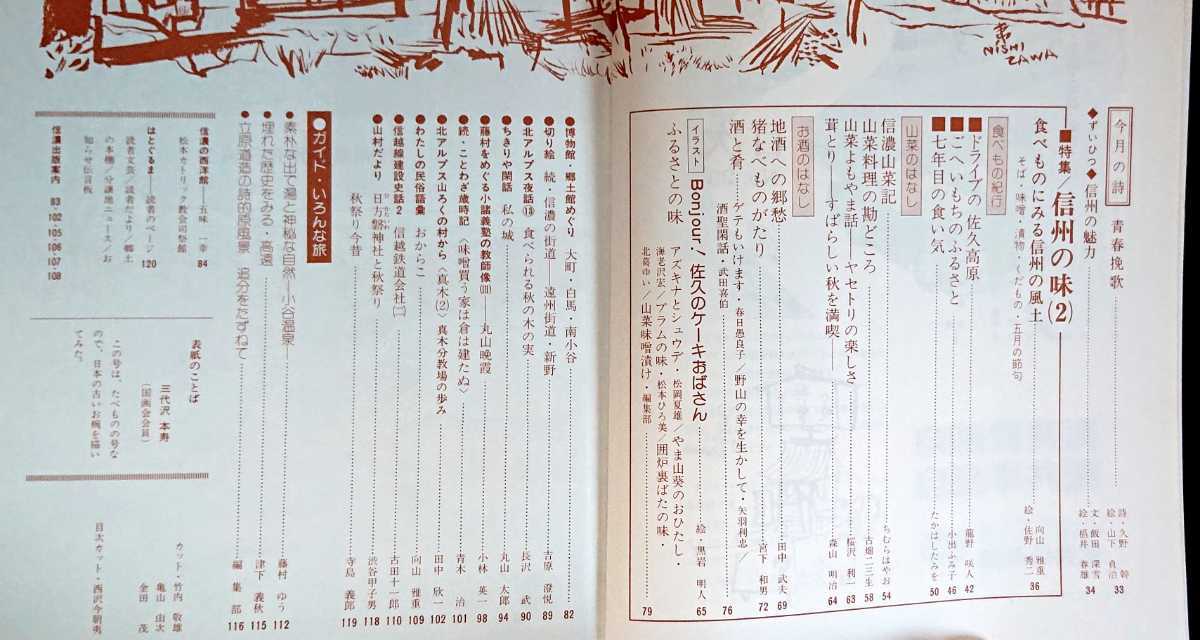 今月の詩 青春挽歌 詩・久野 幹 絵・山下 貞治 33
◆ずいひつ◆ 信州の魅力 文・飯田 深雪 絵・橿井 春雄 34
■特集/信州の味(2)
食べものにみる信州の風土 向山 雅重 絵・佐野 秀二 36
そば・味噌・漬物・くだもの・五月の節句
食べもの紀行
■ドライブの 佐久高原 龍野 咲人 42
■ごへいもちのふるさと 小出ふみ子 46
■七年目の食い気 たかはしたみを 50
山菜のはなし
信濃山菜記 ちむらはやお 54
山菜料理の勘どころ 古畑一三生 58
山菜よもやま話――ヤセトリの楽しさ 桜沢 利一 63
茸とり――すばらしい秋を満喫 森山 明治 64
お酒のはなし
地酒への郷愁 田中 武夫 69
猪なべものがたり 宮下 和男 72
酒と肴――ゲテもいけます・春日愚良子/野山の幸を生かして・矢羽利忠/
酒聖閑話・武田喜伯 76
イラスト Bonjour、佐久のケーキおばさん 絵・黒岩 明人 65
ふるさとの味 アズキナとシュウデ・松岡夏雄/やま山葵のおひたし・
海老沢宏/プラムの味・松本ひろ美/囲炉裏ばたの味・
北葛ゆい/山菜味噌漬け・編集部 79
●博物館・郷土館めぐり 大町・白馬・南小谷 82
●切り絵 続・信濃の街道――遠州街道・新野 吉原 澄悦 89
●北アルプス夜話⑬ 食べられる秋の木の実 長沢 武 90
●ちきりや閑話 私の城 丸山 太郎 94
●藤村をめぐる小諸義塾の教師像(Ⅲ)――丸山晩霞 小林 英一 98
●続・ことわざ歳時記 〈味噌買う家は倉は建たぬ〉 青木 治 101
●北アルプス山ろくの村から〈真木(2)〉真木分教場の歩み 田中 欣一 102
●わたしの民俗語彙 おからこ 向山 雅重 109
●信越線建設史話2 信越鉄道会社(二) 古田十一郎 110
●山村だより 日方磐神社と秋祭り 渋谷甲子男 118
秋祭り今昔 寺島 義郎 119
●ガイド・いろんな旅
●素朴な出で湯と神秘な自然――小谷温泉 藤村 ゆう 112
●埋れた歴史をみる・高遠 津下 義秋 115
●立原道造の詩的原風景 追分をたずねて 編集部 116
信濃の西洋館――五味 一幸 84
松本カトリック教会司祭館
はとぐるま――読者のページ 120
読者文芸/読者だより/郷土
の本棚/分譲地ニュース/お
知らせ伝言板
信濃出版案内 83・102・105・106・107・108
表紙のことば
三代沢 本寿
(国画会会員)
この号は、たべものの号な
ので、日本の古いお碗を描い
てみた。
カット・竹内 敬雄
亀山 由次
金田 茂
目次カット・西沢今朝夷
NISHIZAWA